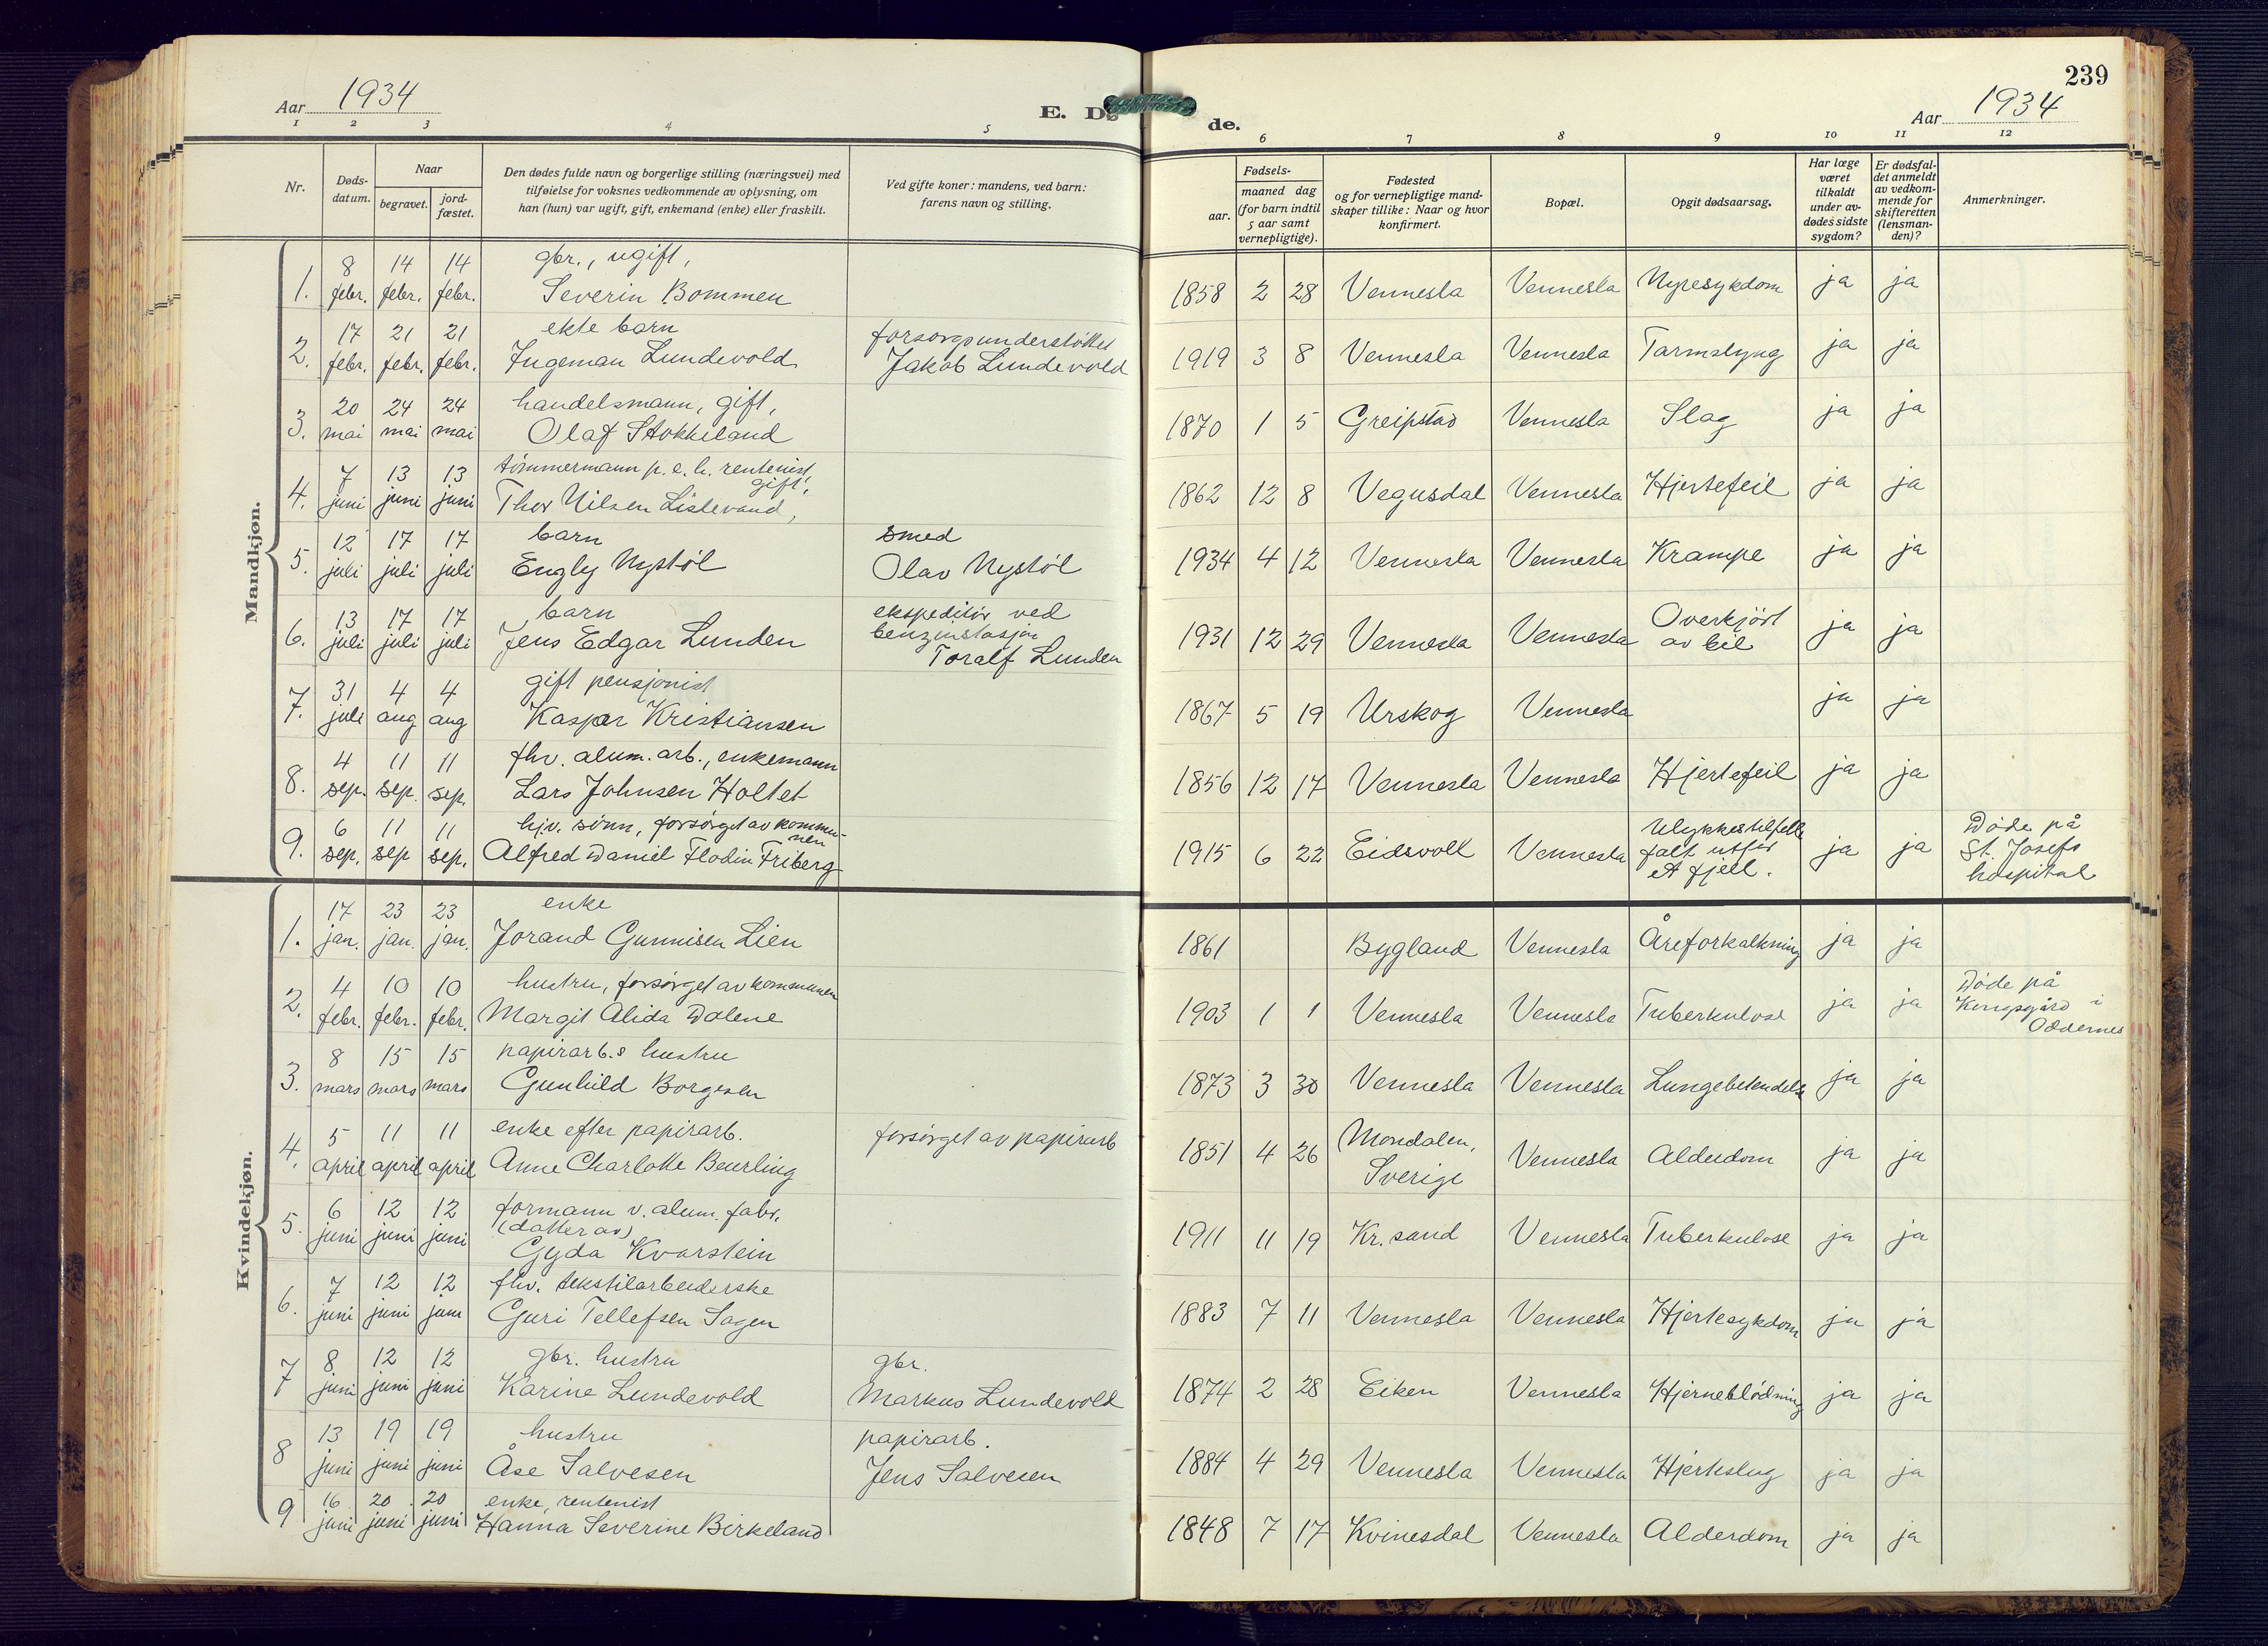 Aar 1934
E. Dø
de.
239
Aar 1934
1 2 3 4 5 6 7 8 9 10 11 12
Nr.
Døds-
datum.
Naar
begravet.
jord-
fæstet.
Den dødes fulde navn og borgerlige stilling (næringsvei) med
tilføielse for voksnes vedkommende av oplysning, om
han (hun) var ugift, gift, enkemand (enke) eller fraskilt.
Ved gifte koner: mandens, ved barn:
farens navn og stilling.
Fødsels-
aar.
maaned dag
(for barn indtil
5 aar samt
vernepligtige).
Fødested
og for vernepligtige mand-
skaper tillike: Naar og hvor
konfirmert.
Bopæl.
Opgit dødsaarsag.
Har læge
været
tilkaldt
under av-
dødes sidste
sygdom?
Er dødsfal-
det anmeldt
av vedkom-
mende for
skifteretten
(lensman-
den)?
Anmerkninger.
Mandkjøn.
8 14 14 gbr., ugift,
1. febr. febr. febr. Severin Bommen 1858 2 28 Vennesla Vennesla Nyresykdom ja ja
17 21 21 ekte barn forsorgsunderstøttet
2. febr. febr. febr. Ingeman Lundevold Jakob Lundevold 1919 3 8 Vennesla Vennesla Tarmslyng ja ja
20 24 24 handelsmann, gift,
3. mai mai mai Olaf Stokkeland 1870 1 5 Greipstad Vennesla Slag ja ja
7 13 13 tömmermann p.e.h. rentenist,
gift,
4. juni juni juni Thor Nilsen Listevand, 1862 12 8 Vegusdal Vennesla Hjertefeil ja ja
12 17 17 barn smed
5. juli juli juli Engly Nystøl Olav Nystøl 1934 4 12 Vennesla Vennesla Krampe ja ja
13 17 17 barn ekspeditör ved
benzinstasjon
6. juli juli juli Jens Edgar Lunden Toralf Lunden 1931 12 29 Vennesla Vennesla Overkjört
av bil ja ja
31 4 4 gift pensjonist
7. juli aug aug Kaspar Kristiansen 1867 5 19 Urskog Vennesla ja ja
4 11 11 fhv. alum. arb., enkemann
8. sep. sep. sep. Lars Johnsen Holtet 1856 12 17 Vennesla Vennesla Hjertefeil ja ja
6 11 11 hjv. sönn, forsörget av kommu-
nen
9. sep. sep sep. Alfred Daniel Flodin Friberg 1915 6 22 Eidsvoll Vennesla Ulykkestilfelle
falt utfor
et fjell. ja ja Döde på
St. Josefs
hospital
Kvindekjøn.
17 23 23 enke
1. jan. jan. jan. Jorand Gunnisen Lien 1861 Bygland Vennesla Åreforkalkning ja ja
4 10 10 hustru, forsörget av kommunen
2. febr. febr. febr. Margit Alida Dalene 1903 1 1 Vennesla Vennesla Tuberkulose ja ja Döde på
Kongsgård i
Oddernes
8 15 15 papirarb.s hustru
3. mars mars mars Gunhild Borgesen 1873 3 30 Vennesla Vennesla Lungebetendelse ja ja
5 11 11 enke efter papirarb. forsörget av papirarb
4. april april april Anne Charlotte Beurling 1851 4 26 Mondalen,
Sverige Vennesla Alderdom ja ja
6 12 12 formann v. alum. fabr.
(datter av)
5. juni juni juni Gyda Kvarstein 1911 11 19 Kr.sand Vennesla Tuberkulose ja ja
7 12 12 fhv. tekstilarbeiderske
6. juni juni juni Guri Tellefsen Sagen 1883 7 11 Vennesla Vennesla Hjertesykdom ja ja
8 12 12 gbr. hustru gbr.
7 juni juni juni Karine Lundevold Markus Lundevold 1874 2 28 Eiken Vennesla Hjerneblödning ja ja
13 19 19 hustru papirarb.
8 juni juni juni Åse Salvesen Jens Salvesen 1884 4 29 Vennesla Vennesla Hjerteslag ja ja
16 20 20 enke, rentenist
9 juni juni juni Hanna Severine Birkeland 1848 7 17 Kvinesdal Vennesla Alderdom ja ja